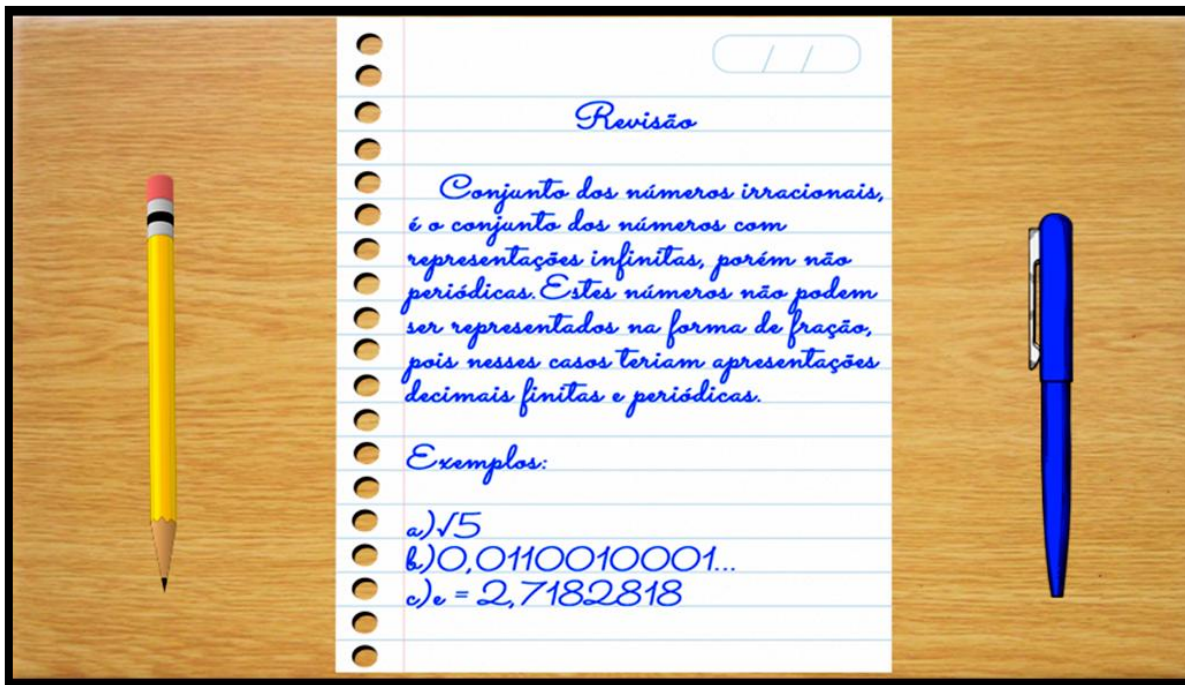 Revisão
Conjunto dos números irracionais,
é o conjunto dos números com
representações infinitas, porém não
periódicas. Estes números não podem
ser representados na forma de fração,
pois nesses casos teriam apresentações
decimais finitas e periódicas.
Exemplos:
a)√5
b)0,0110010001...
c)e = 2,7182818